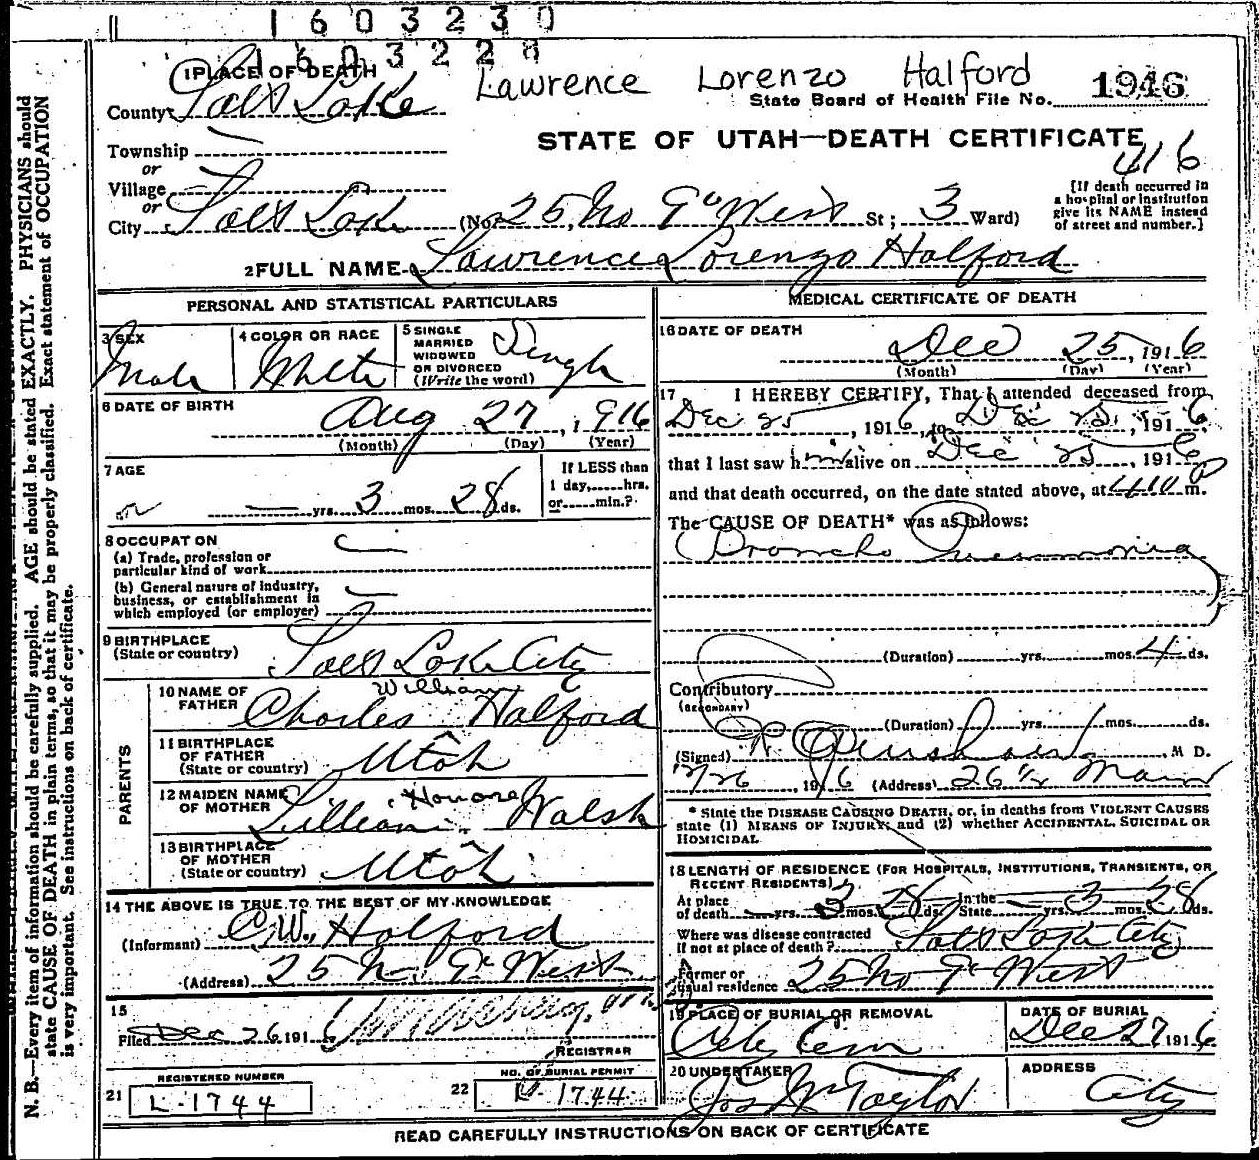 1603230
1603228
1 PLACE OF DEATH
Lawrence Lorenzo Halford
County Salt Lake
State Board of Health File No. 1946
STATE OF UTAH—DEATH CERTIFICATE
416
Township
or
Village
or
City Salt Lake (No. 25 No 9th West St; 3 Ward)
[If death occurred in
a hospital or institution
give its NAME instead
of street and number.]
2 FULL NAME Lawrence Lorenzo Halford
PERSONAL AND STATISTICAL PARTICULARS
3 SEX
Male
4 COLOR OR RACE
White
5 SINGLE
MARRIED
WIDOWED
OR DIVORCED
(Write the word)
Single
6 DATE OF BIRTH
Aug 27, 1916
(Month) (Day) (Year)
7 AGE
— yrs. 3 mos. 28 ds.
If LESS than
1 day,......hrs.
or......min.?
8 OCCUPATON
(a) Trade, profession or
particular kind of work
(b) General nature of industry,
business, or establishment in
which employed (or employer)
9 BIRTHPLACE
(State or country) Salt Lake City
PARENTS
10 NAME OF
FATHER
Charles William Halford
11 BIRTHPLACE
OF FATHER
(State or country) Utah
12 MAIDEN NAME
OF MOTHER
Lillian Honore Walsh
13 BIRTHPLACE
OF MOTHER
(State or country) Utah
14 THE ABOVE IS TRUE TO THE BEST OF MY KNOWLEDGE
(Informant) C.W. Halford
(Address) 25 N. 9th West
15
Filed Dec 26 1916
REGISTRAR
REGISTERED NUMBER
21 L-1744
NO. OF BURIAL PERMIT
22 L-1744
MEDICAL CERTIFICATE OF DEATH
16 DATE OF DEATH
Dec 25, 1916
(Month) (Day) (Year)
17 I HEREBY CERTIFY, That I attended deceased from
Dec 25, 1916, to Dec 25, 1916
that I last saw him alive on Dec 25, 1916
and that death occurred, on the date stated above, at 4:10 P m.
The CAUSE OF DEATH* was as follows:
Broncho Pneumonia
(Duration) yrs. mos. 4 ds.
Contributory
(SECONDARY)
(Duration) yrs. mos. ds.
(Signed) M D.
12/26, 1916 (Address) 26 1/2 Main
* State the DISEASE CAUSING DEATH, or, in deaths from VIOLENT CAUSES
state (1) MEANS OF INJURY; and (2) whether ACCIDENTAL, SUICIDAL OR
HOMICIDAL
18 LENGTH OF RESIDENCE (FOR HOSPITALS, INSTITUTIONS, TRANSIENTS, OR
RECENT RESIDENTS)
At place
of death — yrs. 3 mos. 28 ds.
In the
State — yrs. 3 mos. 28 ds.
Where was disease contracted
if not at place of death? Salt Lake City
Former or
usual residence 25 No 9th West
19 PLACE OF BURIAL OR REMOVAL
City Cem
DATE OF BURIAL
Dec 27 1916
20 UNDERTAKER
Jos Wm Taylor
ADDRESS
City
READ CAREFULLY INSTRUCTIONS ON BACK OF CERTIFICATE
N. B.—Every item of information should be carefully supplied. AGE should be stated EXACTLY. PHYSICIANS should
state CAUSE OF DEATH in plain terms, so that it may be properly classified. Exact statement of OCCUPATION
is very important. See instructions on back of certificate.